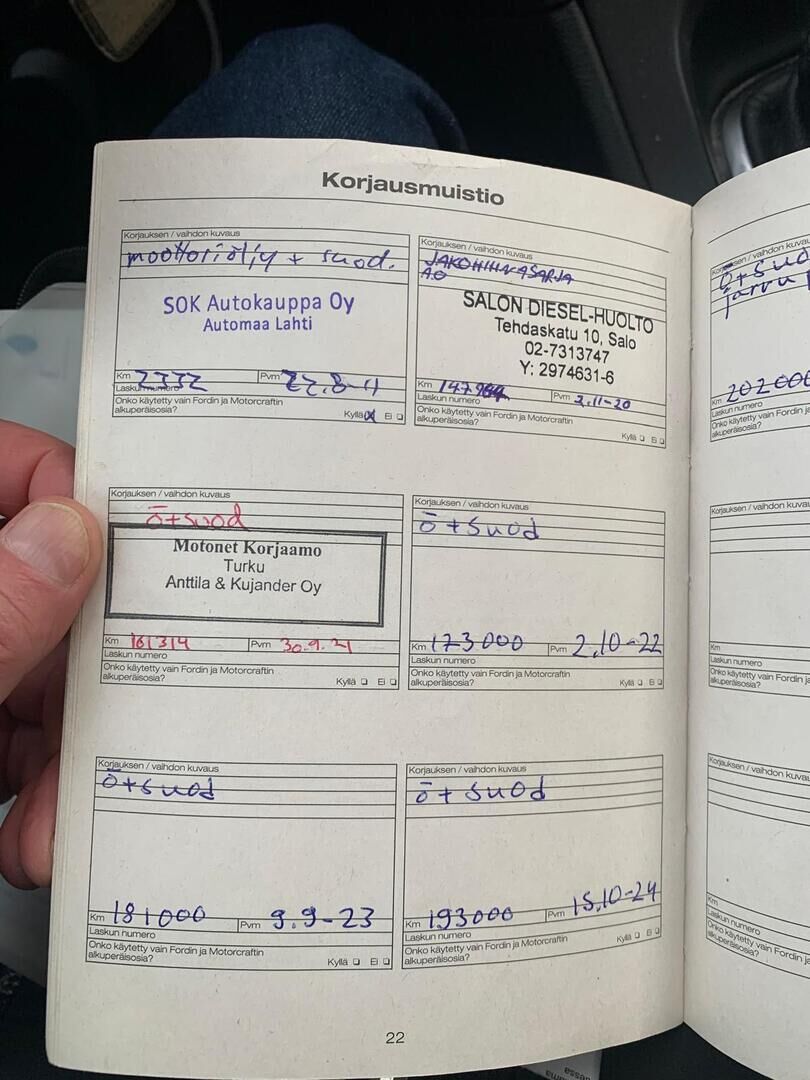 Korjausmuistio
Korjauksen / vaihdon kuvaus
moottoriöljy + suod.
SOK Autokauppa Oy
Automaa Lahti
Km 2332 Pvm 22.8-11
Laskun numero
Onko käytetty vain Fordin ja Motorcraftin
alkuperäisosia?
Kyllä Ei
Korjauksen / vaihdon kuvaus
JAKOHIHNASARJA
A.O
SALON DIESEL-HUOLTO
Tehdaskatu 10, Salo
02-7313747
Y: 2974631-6
Km Pvm 2.11-20
Laskun numero
Onko käytetty vain Fordin ja Motorcraftin
alkuperäisosia?
Kyllä Ei
Korjauksen / vaihdon kuvaus
ō+suod
Motonet Korjaamo
Turku
Anttila & Kujander Oy
Km 161314 Pvm 30.9.21
Laskun numero
Onko käytetty vain Fordin ja Motorcraftin
alkuperäisosia?
Kyllä Ei
Korjauksen / vaihdon kuvaus
ō+suod
Km 173000 Pvm 2.10-22
Laskun numero
Onko käytetty vain Fordin ja Motorcraftin
alkuperäisosia?
Kyllä Ei
Korjauksen / vaihdon kuvaus
ō+suod
Km 181000 Pvm 9.9-23
Laskun numero
Onko käytetty vain Fordin ja Motorcraftin
alkuperäisosia?
Kyllä Ei
Korjauksen / vaihdon kuvaus
ō+suod
Km 193000 Pvm 15.10-24
Laskun numero
Onko käytetty vain Fordin ja Motorcraftin
alkuperäisosia?
Kyllä Ei
22
Korjauksen / vaihdon kuvau
ō+suo
Km 202000
Laskun numero
Onko käytetty vain Fordin ja
alkuperäisosia?
Korjauksen / vaihdon kuvau
Km
Laskun numero
Onko käytetty vain Fordin ja
alkuperäisosia?
Korjauksen / vaihdon kuvau
Km
Laskun numero
Onko käytetty vain Fordin ja
alkuperäisosia?